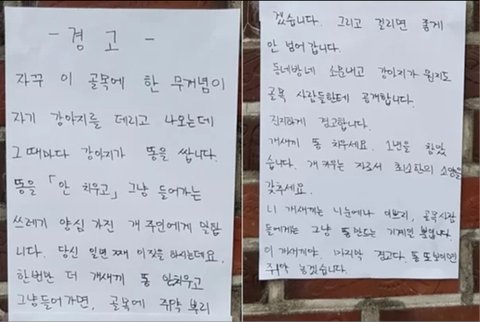 - 경 고 -
자꾸 이 골목에 한 무개념이
자기 강아지를 데리고 나오는데
그때마다 강아지가 똥을 쌉니다.
똥을 「안 치우고」 그냥 들어가는
쓰레기 양심 가진 개 주인에게 말합
니다. 당신 일면 째 이짓을 하시는데요.
한번만 더 개새끼 똥 안치우고
그냥들어가면, 골목에 쥐약 뿌리
겠습니다. 그리고 걸리면 좋게
안 넘어갑니다.
동네방네 소문내고 강아지가 뭔지도
골목 사람들한테 공개합니다.
진지하게 경고합니다.
개새끼 똥 치우세요. 1년을 참았
습니다. 개 키우는 자로서 최소한의 소양을
갖추세요.
니 개새끼는 니눈에나 이쁘지, 골목사람
들에게는 그냥 똥 만드는 기계일 뿐입니다.
이 개새끼야. 마지막 경고다. 똥 또 보이면
쥐약 놓겠습니다.